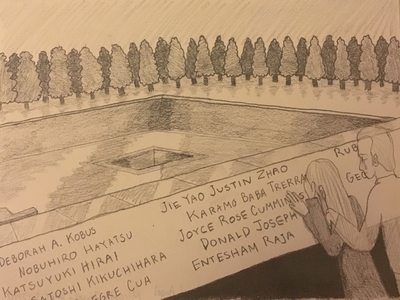 DEBORAH A. KOBUS
NOBUHIRO HAYATSU
KATSUYUKI HIRAI
SATOSHI KIKUCHIHARA
CUA
JIE YAO JUSTIN ZHAO
KARAMO BABA TRERRA
JOYCE ROSE CUMMINGS
DONALD JOSEPH
ENTESHAM RAJA
RUB
GEO